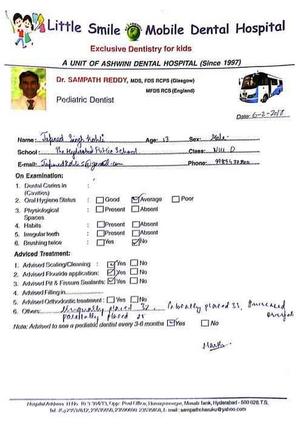 Little Smile Mobile Dental Hospital
Exclusive Dentistry for kids
A UNIT OF ASHWINI DENTAL HOSPITAL (Since 1997)
Dr. SAMPATH REDDY, MDS, FDS RCPS (Glasgow)
MFDS RCS (England)
Pediatric Dentist
Date: 6-2-2018
Name: Singh Age: 13 Sex: Male
School: The Hyderabad Public School Class: VIII D
E-mail: Phone:
On Examination:
1. Dental Caries in :
(Cavities)
2. Oral Hygiene Status : Good Average Poor
3. Physiological : Present Absent
Spaces
4. Habits : Present Absent
5. Irregular teeth : Present Absent
6. Brushing twice : Yes No
Adviced Treatment:
1. Advised Scaling/Cleaning : Yes No
2. Advised Flouride application: Yes No
3. Advised Pit & Fissure Sealants: Yes No
4. Advised Filling in
5. Advised Orthodontic treatment : Yes No
6. Others: placed 32, placed 33, Increased
placed
Note: Advised to see a pediatric dentist every 3-6 months Yes No
Hospital Address: Opp. Post Office, Humayunnagar, Hyderabad - 500 028. T.S.